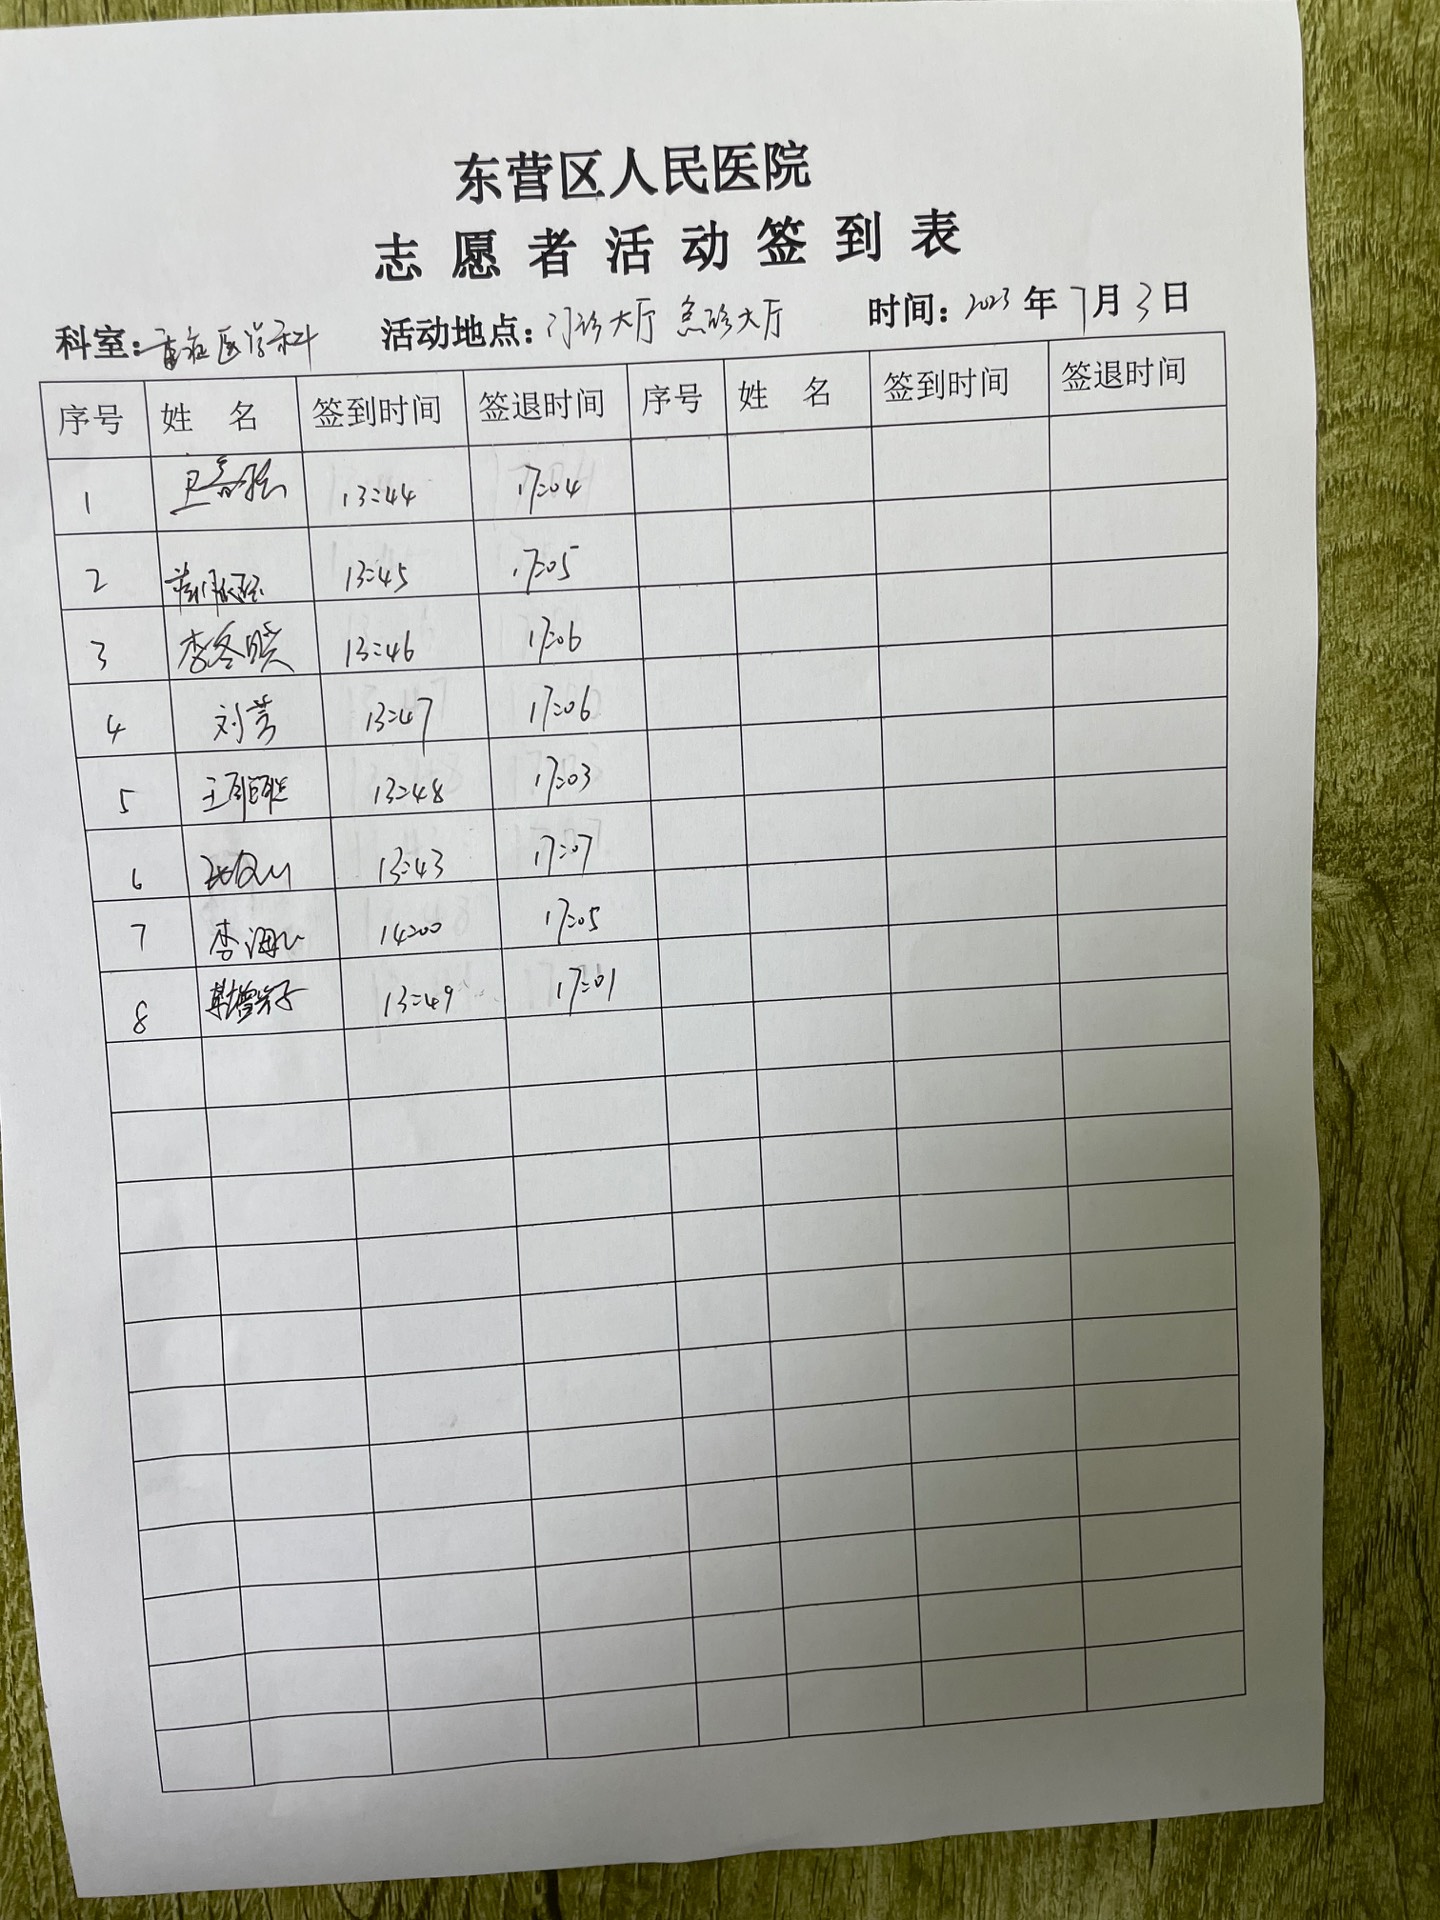 东营区人民医院
志愿者活动签到表
科室：重症医学科 活动地点：门诊大厅 急诊大厅 时间：2023年7月3日
序号 姓名 签到时间 签退时间 序号 姓名 签到时间 签退时间
1 13:44 17:04
2 13:45 17:05
3 李冬晓 13:46 17:06
4 刘芳 13:47 17:06
5 13:48 17:03
6 13:43 17:07
7 李海 14:00 17:05
8 13:49 17:01